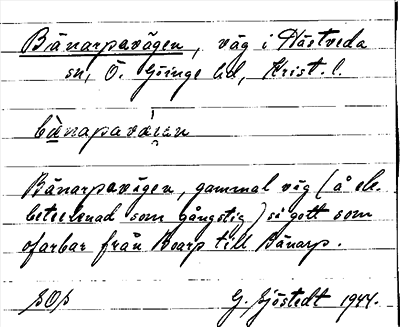 Bänarpavägen, väg i Hästveda
sn, Ö. Göinge hd, Krist. l.
bànapaváien
Bänarpavägen, gammal väg (å ek.
betecknad som gångstig) så gott som
ofarbar från Boarp till Bänarp.
SOS G. Sjöstedt 1944.